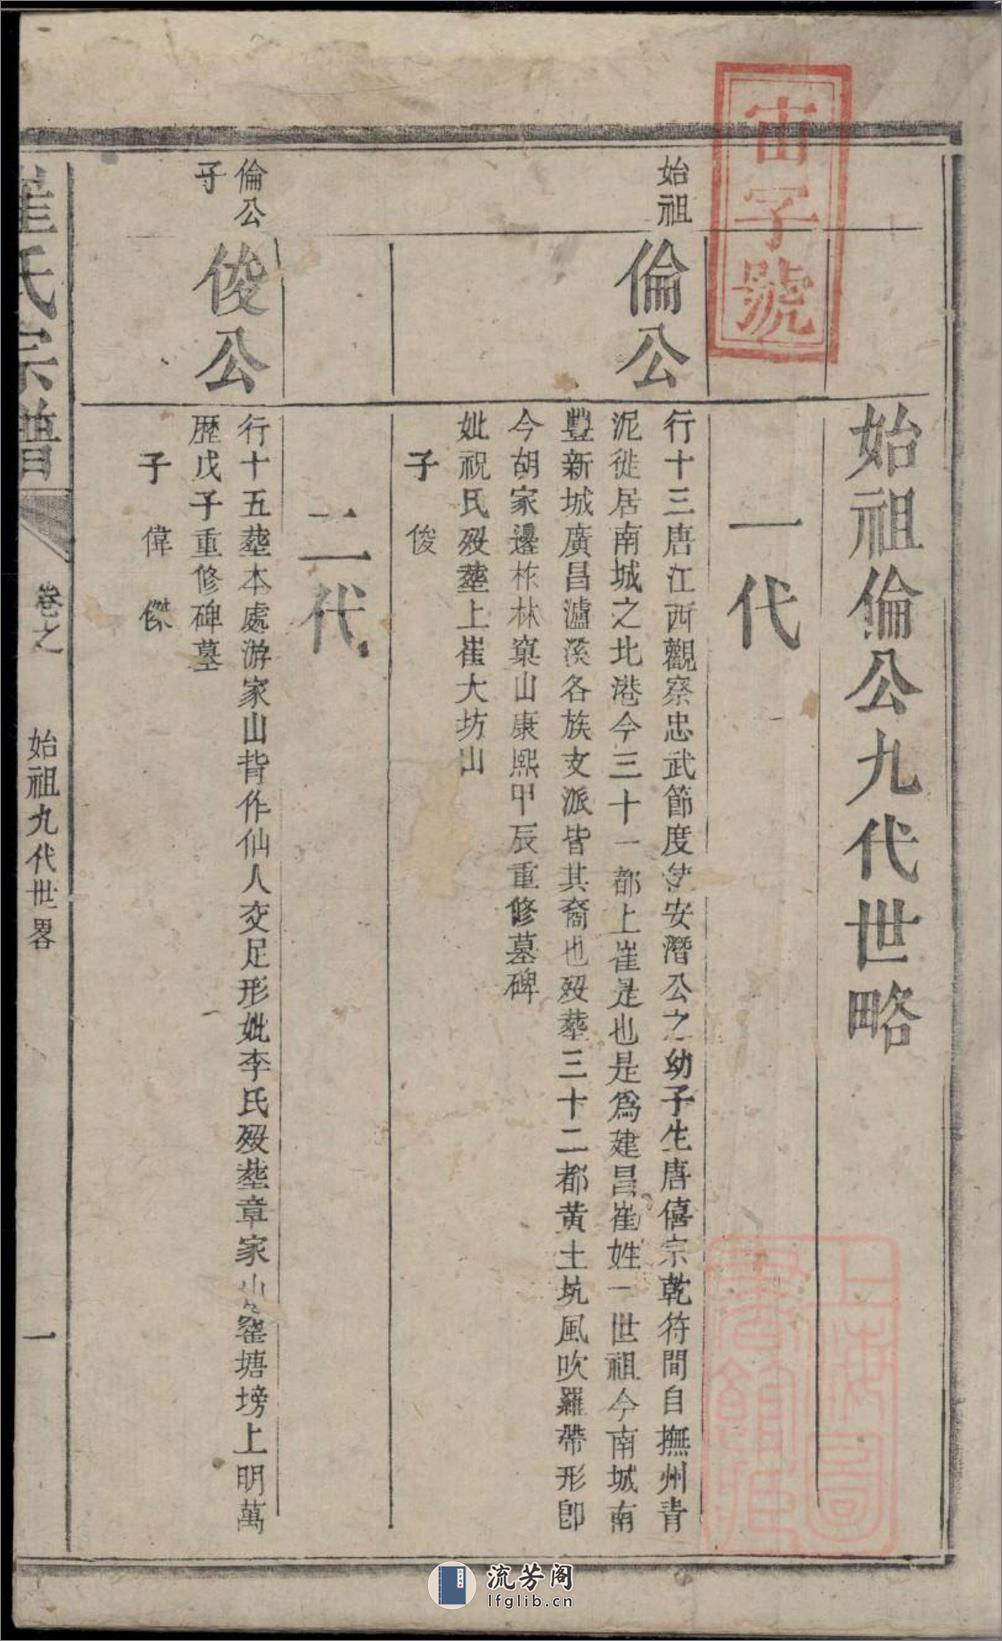 宙字號
始祖倫公九代世略
一代
始祖
倫公
行十三唐江西觀察忠武節度使安潛公之幼子生唐僖宗乾符間自撫州青
泥徙居南城之北港今三十一都上崔是也是爲建昌崔姓一世祖今南城南
豐新城廣昌瀘溪各族支派皆其裔也歿塟三十二都黃土坑風吹羅帶形卽
今胡家邊柞林窠山康熙甲辰重修墓碑
妣祝氏歿塟上崔大坊山
子 俊
二代
倫公
子
俊公
行十五塟本處游家山背作仙人交足形妣李氏歿塟章家山窰塘塝上明萬
歷戊子重修碑墓
子 偉 傑
崔氏宗譜
卷之
始祖九代世畧
一
上海圖書館藏
流芳阁
lfglib.cn